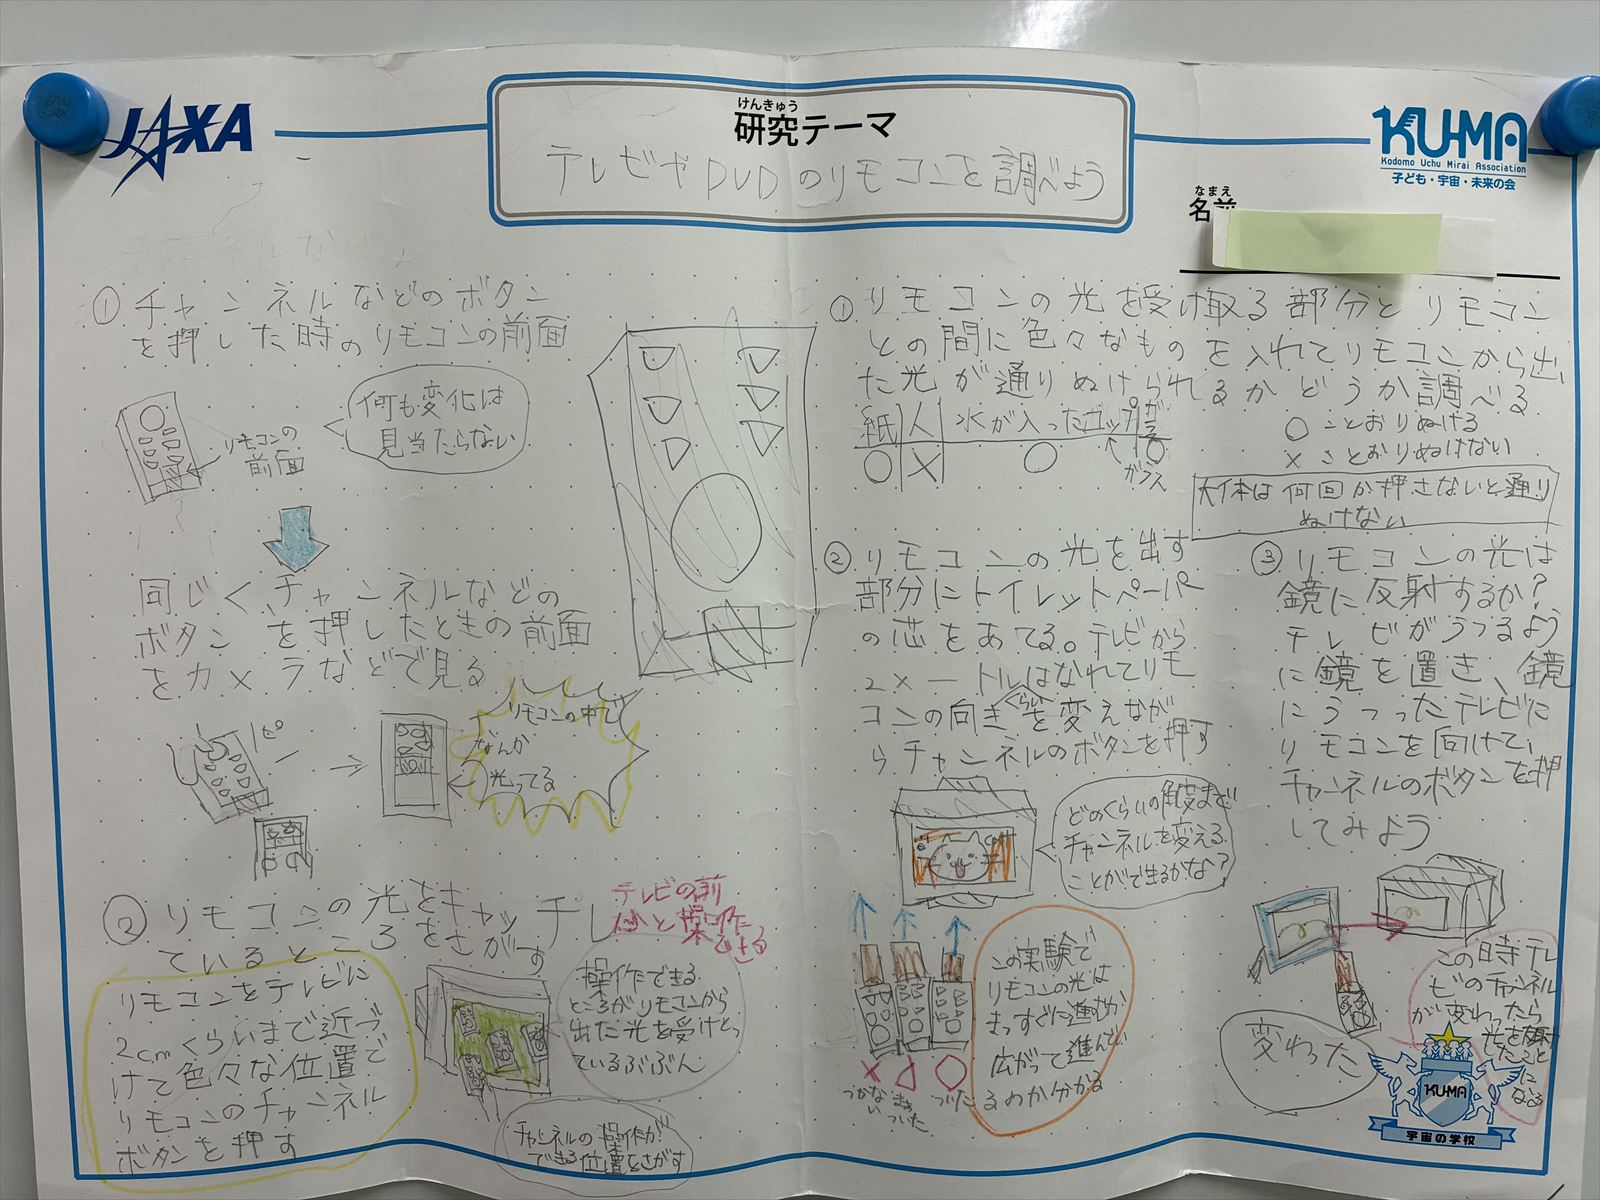 JAXA
けんきゅう
研究テーマ
テレビやDVDのリモコンを調べよう
KU-MA
Kodomo Uchu Mirai Association
子ども・宇宙・未来の会
なまえ
名前
① チャンネルなどのボタン
を押した時のリモコンの前面
何も変化は
見当たらない
リモコンの
前面
同じく、チャンネルなどの
ボタンを押したときの前面
をカメラなどで見る
ピー
リモコンの中で
なんか
光ってる
② リモコンの光をキャッチし
ているところをさがす
リモコンをテレビに
2cmくらいまで近づ
けて色々な位置で
リモコンのチャンネル
ボタンを押す
テレビの前
だと操作
できる
操作できる
ところがリモコンから
出た光を受けとっ
ているぶぶん
チャンネルの操作が
できる位置をさがす
① リモコンの光を受け取る部分とリモコン
との間に色々なものを入れてリモコンから出
た光が通りぬけられるかどうか調べる
紙 人 水が入ったコップ
○ × ○ ○
ガラス
○ ことおりぬける
× ことおりぬけない
大体は何回か押さないと通り
ぬけない
② リモコンの光を出す
部分にトイレットペーパー
の芯をあてる。テレビから
2メートルはなれてリモ
コンの向きを変えなが
らチャンネルのボタンを押す
どのくらいの角度まで
チャンネルを変える
ことができるかな?
× △ ○
つかない
まあついた
ついた
この実験で
リモコンの光は
まっすぐに進むか
広がって進んでい
るのか分かる
③ リモコンの光は
鏡に反射するか?
テレビがうつるよう
に鏡を置き、鏡
にうつったテレビに
リモコンを向けて、
チャンネルのボタンを押
してみよう
変わった
この時テレ
ビのチャンネル
が変わったら
光を反射
したことに
なる
KU-MA
宇宙の学校